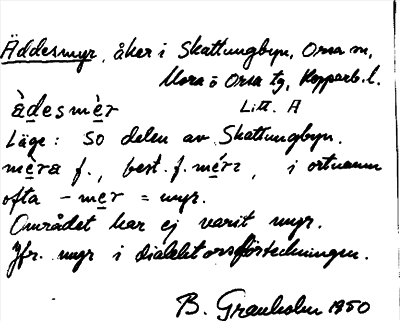 Äddesmyr, åker i Skattungbyn, Orsa sn,
Mora o Orsa tg, Kopparb. l.
àdesmèr Litt. A
Läge: SO delen av Skattungbyn.
mèra f., best. f. , i ortnamn
ofta -mer = myr.
Området har ej varit myr.
Jfr. myr i dialektordsförteckningen.
B. Granholm 1950